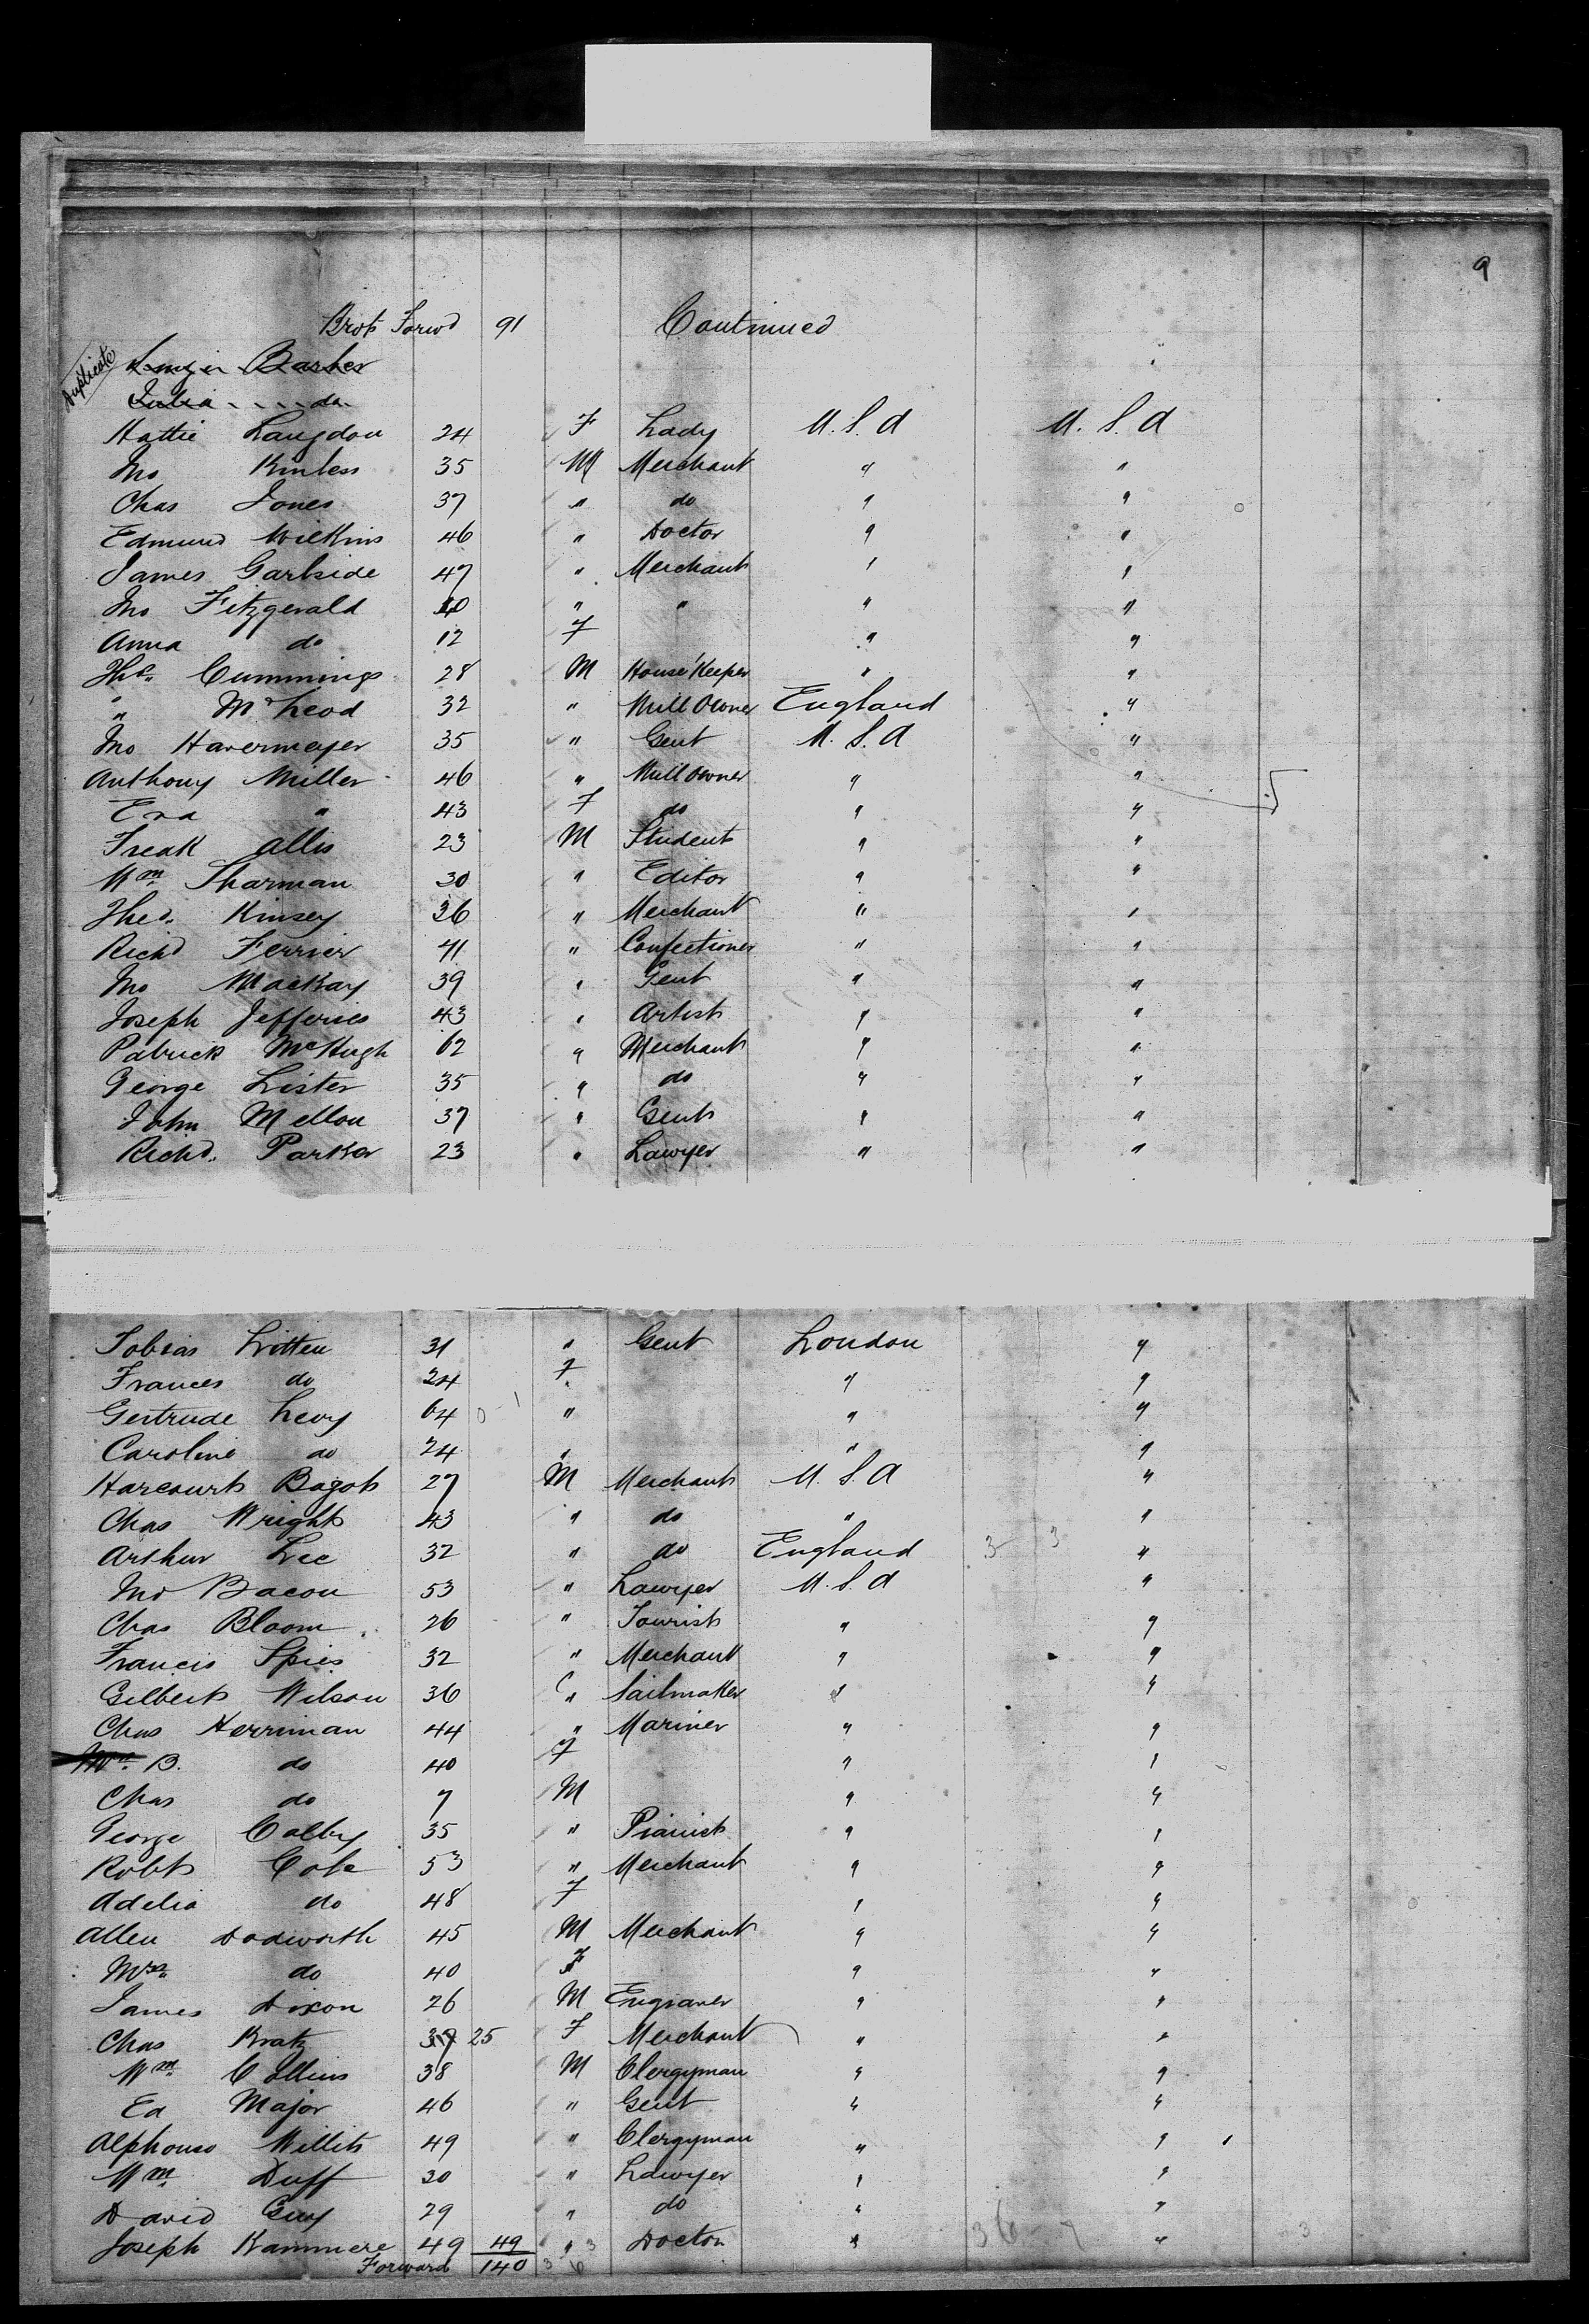 9
Brot Forwd 91 Continued
Duplicate
Barker
Julia do
Hattie Langdon 24 F Lady U.S.A U.S.A
Jno Kinless 35 M Merchant " "
Chas Jones 37 " do " "
Edmund Wilkins 46 " Doctor " "
James Gartside 47 " Merchant " "
Jno Fitzgerald 40 " " " "
Anna do 12 F " "
Ths. Cummings 28 M House Keeper " "
" McLeod 32 " Mill Owner England "
Jno Havermeyer 35 " Gent U.S.A "
Anthony Miller 46 " Mill Owner " "
Eva " 43 F do " "
Freak Allis 23 M Student " "
Wm Sharman 30 " Editor " "
Theo. Kinsey 26 " Merchant " "
Richd Ferrier 41 " Confectioner " "
Jno MacKay 39 " Gent " "
Joseph Jefferies 43 " Artist " "
Patrick McHugh 62 " Merchant " "
George Lister 35 " do " "
John Mellon 37 " Gent " "
Richd. Parker 23 " Lawyer " "
Tobias Litten 31 " Gent London "
Frances do 24 F " "
Gertrude Levy 64 " " "
Caroline do 24 " " "
Harcourt Bagot 27 M Merchant U.S.A "
Chas Wright 43 " do " "
Arthur Lee 32 " do England 3 3 "
Jno Bacon 53 " Lawyer U.S.A "
Chas Bloom 26 " Tourist " "
Francis Spies 32 " Merchant " "
Gilbert Wilson 36 " Sailmaker " "
Chas Herriman 44 " Mariner " "
B. do 40 F " "
Chas do 7 M " "
George Colby 35 " Pianist " "
Robt Cole 53 " Merchant " "
Adelia do 48 F " "
Allen Dodworth 45 M Merchant " "
Mrs. do 40 F " "
James Dixon 26 M Engraver " "
Chas Kratz 37 25 F Merchant " "
Wm Collins 38 M Clergyman " "
Ed Major 46 " Gent " "
Alphonso Willits 49 " Clergyman " "
Wm Duff 30 " Lawyer " "
David Guy 29 " do " "
Joseph Kammere 49 49 " 3 Doctor " 36 "
Forward 140 3 6